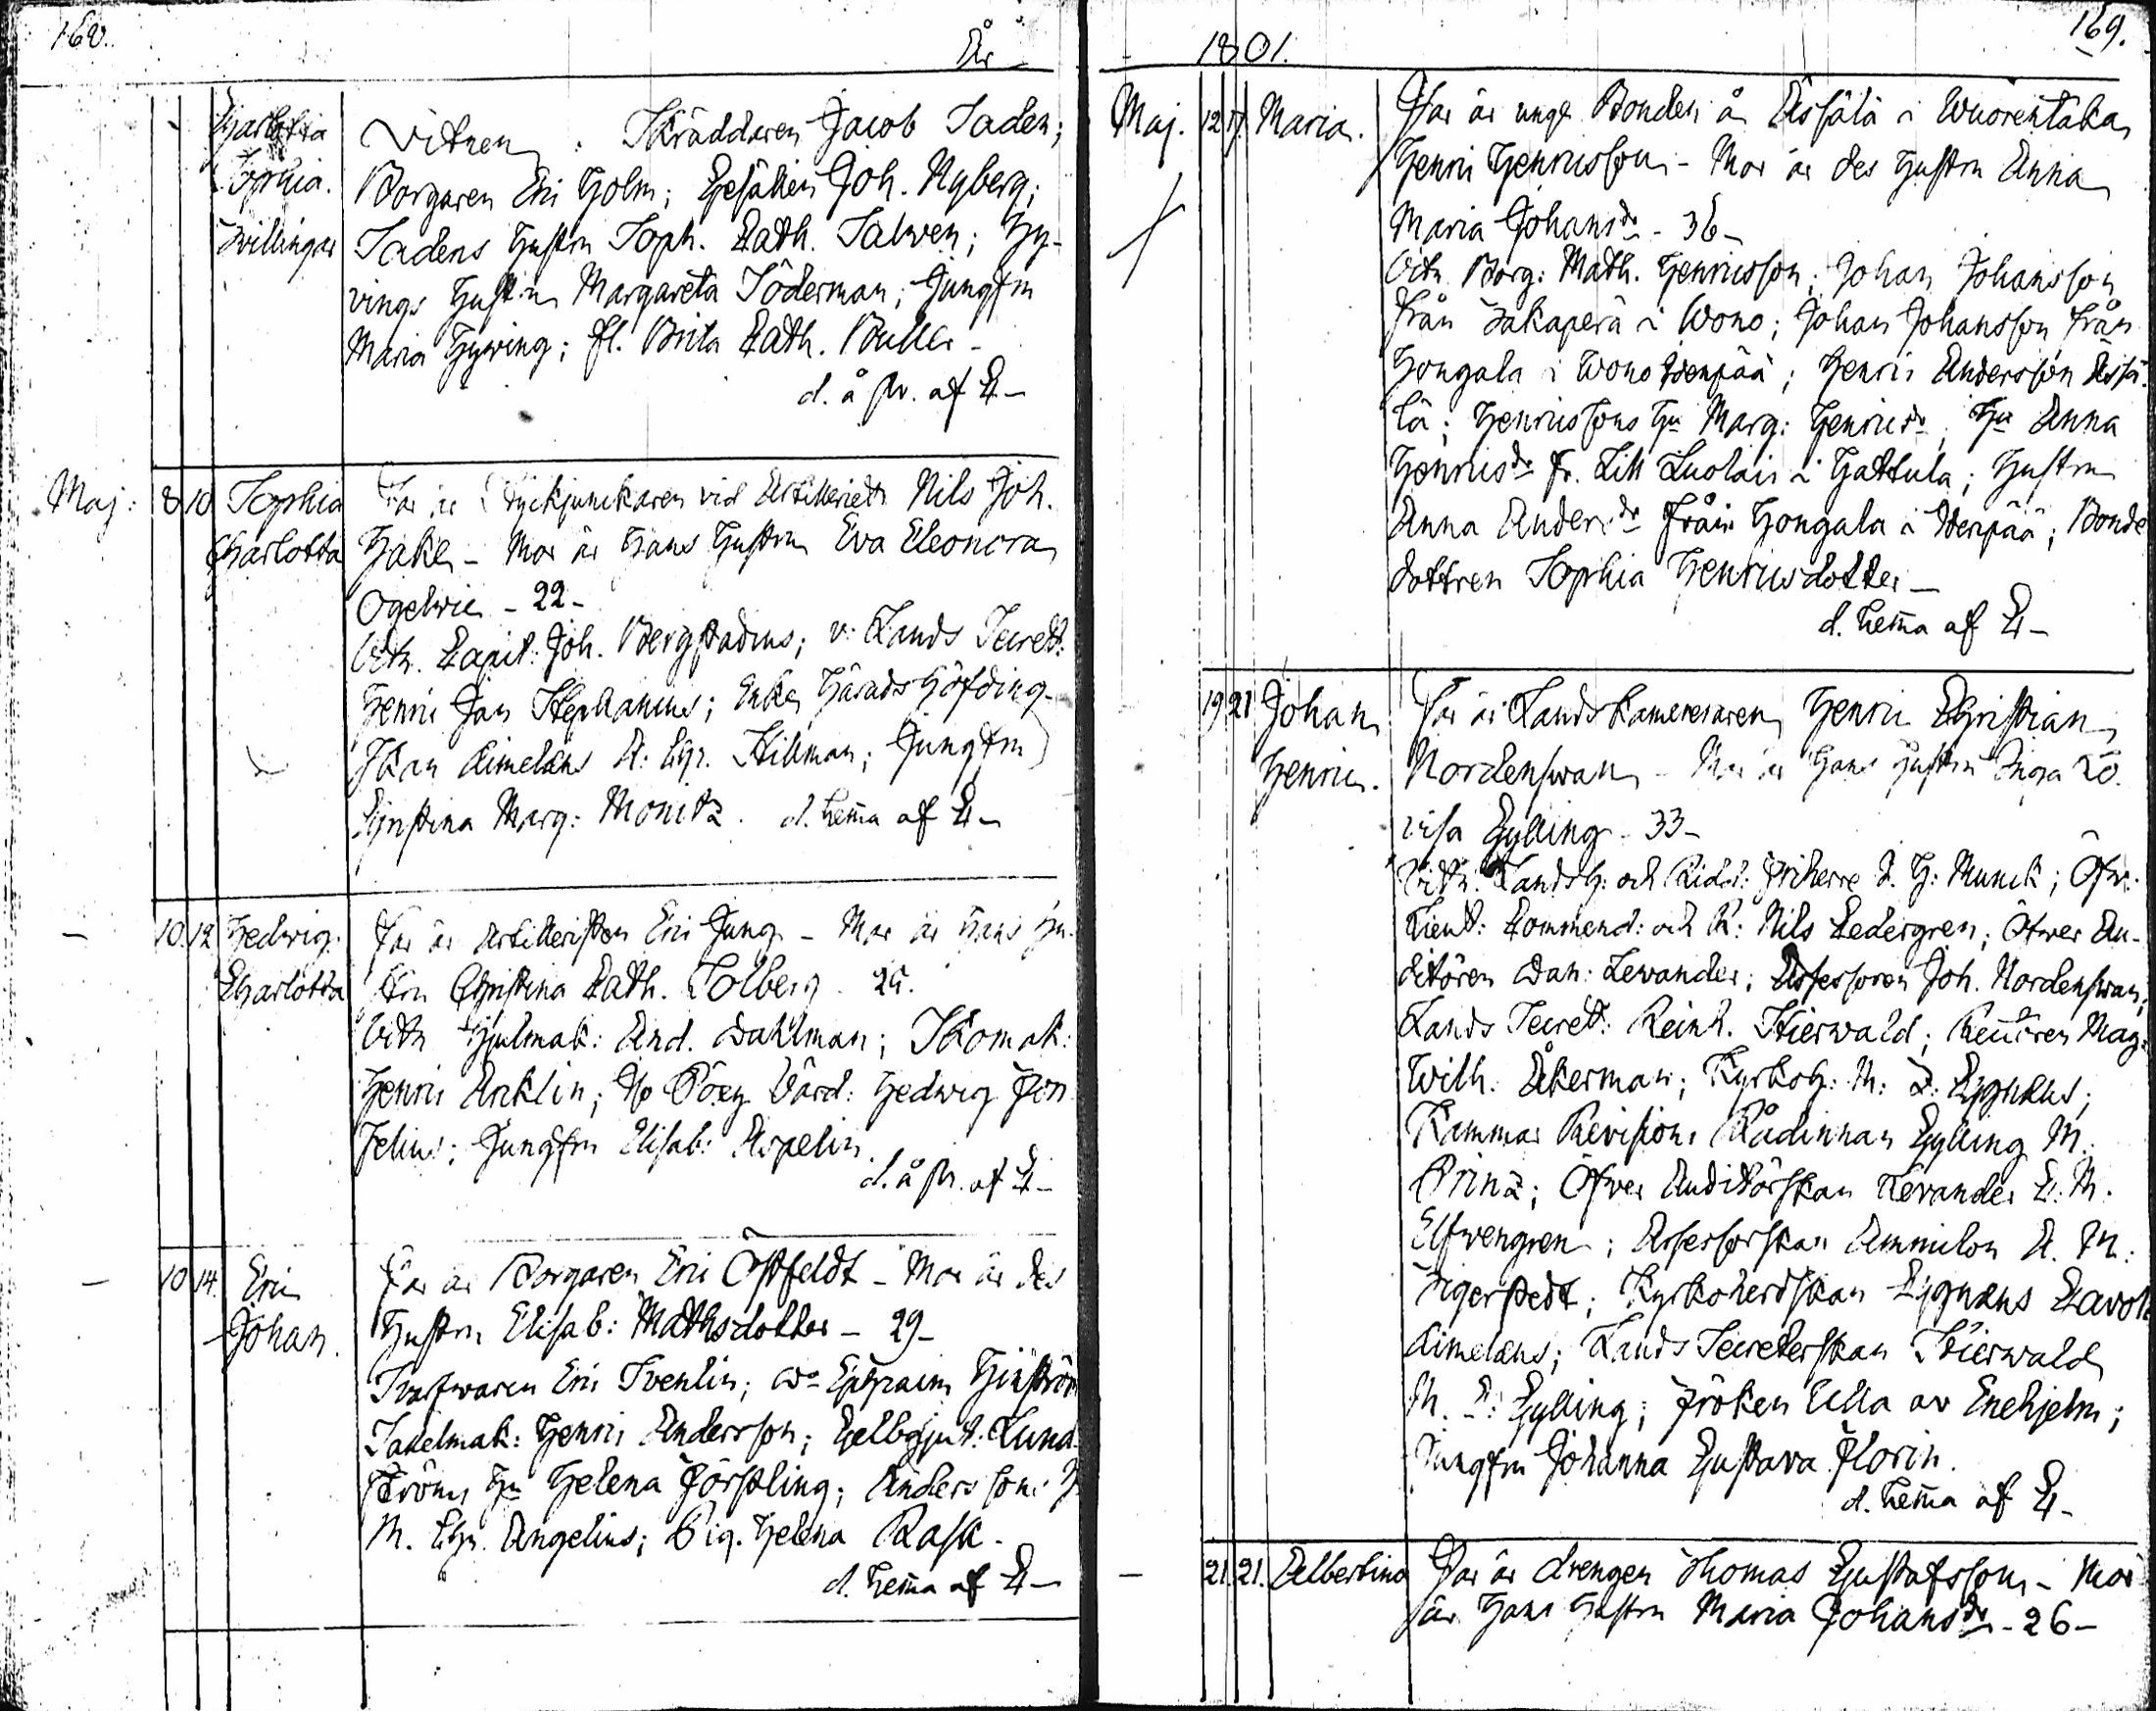 168.
År
Charlotta
Sophia.
Tvillingar
Vitnen: Skräddaren Jacob Saden;
Borgaren Eric Holm; Gesällen Joh. Nyberg;
Sadens Hustru Soph. Cath. Salwen; Hy-
vings Hustru Margareta Söderman; Jungfru
Maria Hyving; fl. Brita Cath. Buller -
d. å pr. af L -
Maj: 8 10 Sophia
Charlotta
Far är Styckjunckaren vid Artilleriet Nils Joh.
Hake - Mor är Hans Hustru Eva Eleonora
Ogelwie - 22 -
Vitn. Capit: Joh. Bergstadius; v: Lands Secret:
Henric Jan Stephanius; Enke Häradshöfding-
skan Aimelæus A: Chr. Stillman; Jungfru
Christina Marg: Monitz. d. hem̄a af L -
- 10 12 Hedwig
Charlotta
Far är Artilleristen Eric Jung - Mor är Hans Hu-
stru Christina Cath. Solberg 25.
Vitn Hjulmak: And. Dahlman; Skomak:
Henric Anklin; Hedwig
Jungfru Elisab: Aspelin.
d. å pr. af L -
- 10 14. Eric
Johan.
Far är Borgaren Eric Östfeldt - Mor är des
Hustru Elisab: Mathsdotter - 29 -
Svarfwaren Eric Svenlin; Do Ephraim Hinström
Sadelmak: Henric Andersson; Gelbgjut: Lund-
ströms Hu Helena Förstling; Anderssons H
M. Chr. Angelius; Pig. Helena Rask -
d. hem̄a af L -
1801.
169.
Maj. 12 17. Maria.
Far är unge Bonden å Ässälä i Wuorentaka
Henric Henricsson - Mor är des Hustru Anna
Maria Johansdr - 36 -
Vitn Borg: Math. Henricsson; Johan Johansson
från Sakaperä i Wono; Johan Johansson från
Hongala i Wono Idenpää; Henric Andersson Ässä-
lä; Henricssons Hu Marg: Henricsdr; Hu Anna
Henricsdr fr. Lill Luolais i Hattula; Hustru
Anna Andersdr från Hongala i Idenpää; Bonde
dottren Sophia Henricsdotter -
d. hem̄a af L -
19 21 Johan
Henric.
Far är Landskamereraren Henric Christian
Nordenswan - Mor är Hans Hustru Inga Lo-
visa Gylling - 33 -
Vitn. Landsh: och Ridd: Friherre A. H: Munck; Öfw.
Lieut: Commend: och R: Nils Cedergren; Öfwer Au-
ditören Dan: Levander; Assessoren Joh. Nordenswan;
Lands Secret: Reinh. Stierwald; Rectoren Mag:
Wilh. Åkerman; Kyrkoh: M: Z: Cygnæus;
Kammar Revisions Rådinnan Gylling M.
Printz; Öfwer Auditörskan Levander C. M.
Elfwengren; Assessorskan Ammilon A. M:
Tigerstedt; Kyrkoherdskan Cygnæus
Aimelæus; Lands Secreterskan Stierwald
M. C: Gylling; Fröken Ulla av Enehjelm;
Jungfru Johanna Gustava Florin.
d. hem̄a af L -
- 21. 21. Albertina
Far är drengen Thomas Gustafsson - Mor
är Hans Hustru Maria Johansdr - 26 -